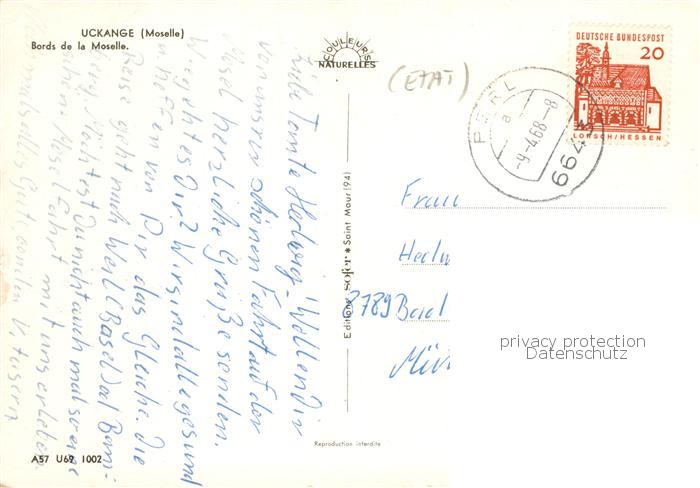 UCKANGE (Moselle)
Bords de la Moselle.
COULEURS
NATURELLES
(ETAT)
DEUTSCHE BUNDESPOST
20
LORSCH/HESSEN
PERL
a
-9.-4.68.-8
6643
Liebe Tante Hedwig. Wollen Dir
von unserer schönen Fahrt auf der
Mosel herzliche Grüße senden.
Wie geht es Dir? Wir sind alle gesund
u. hoffen von Dir das Gleiche. Die
Reise geht nach Weil (Basel)
Möchtest Du nicht auch mal so eine
Mosel Fahrt mit uns erleben.
alles Gute
Editions sofer * Saint Maur (94)
Frau
Hedw
8789 Bad
Reproduction interdite
A57 U69 1002
privacy protection
Datenschutz